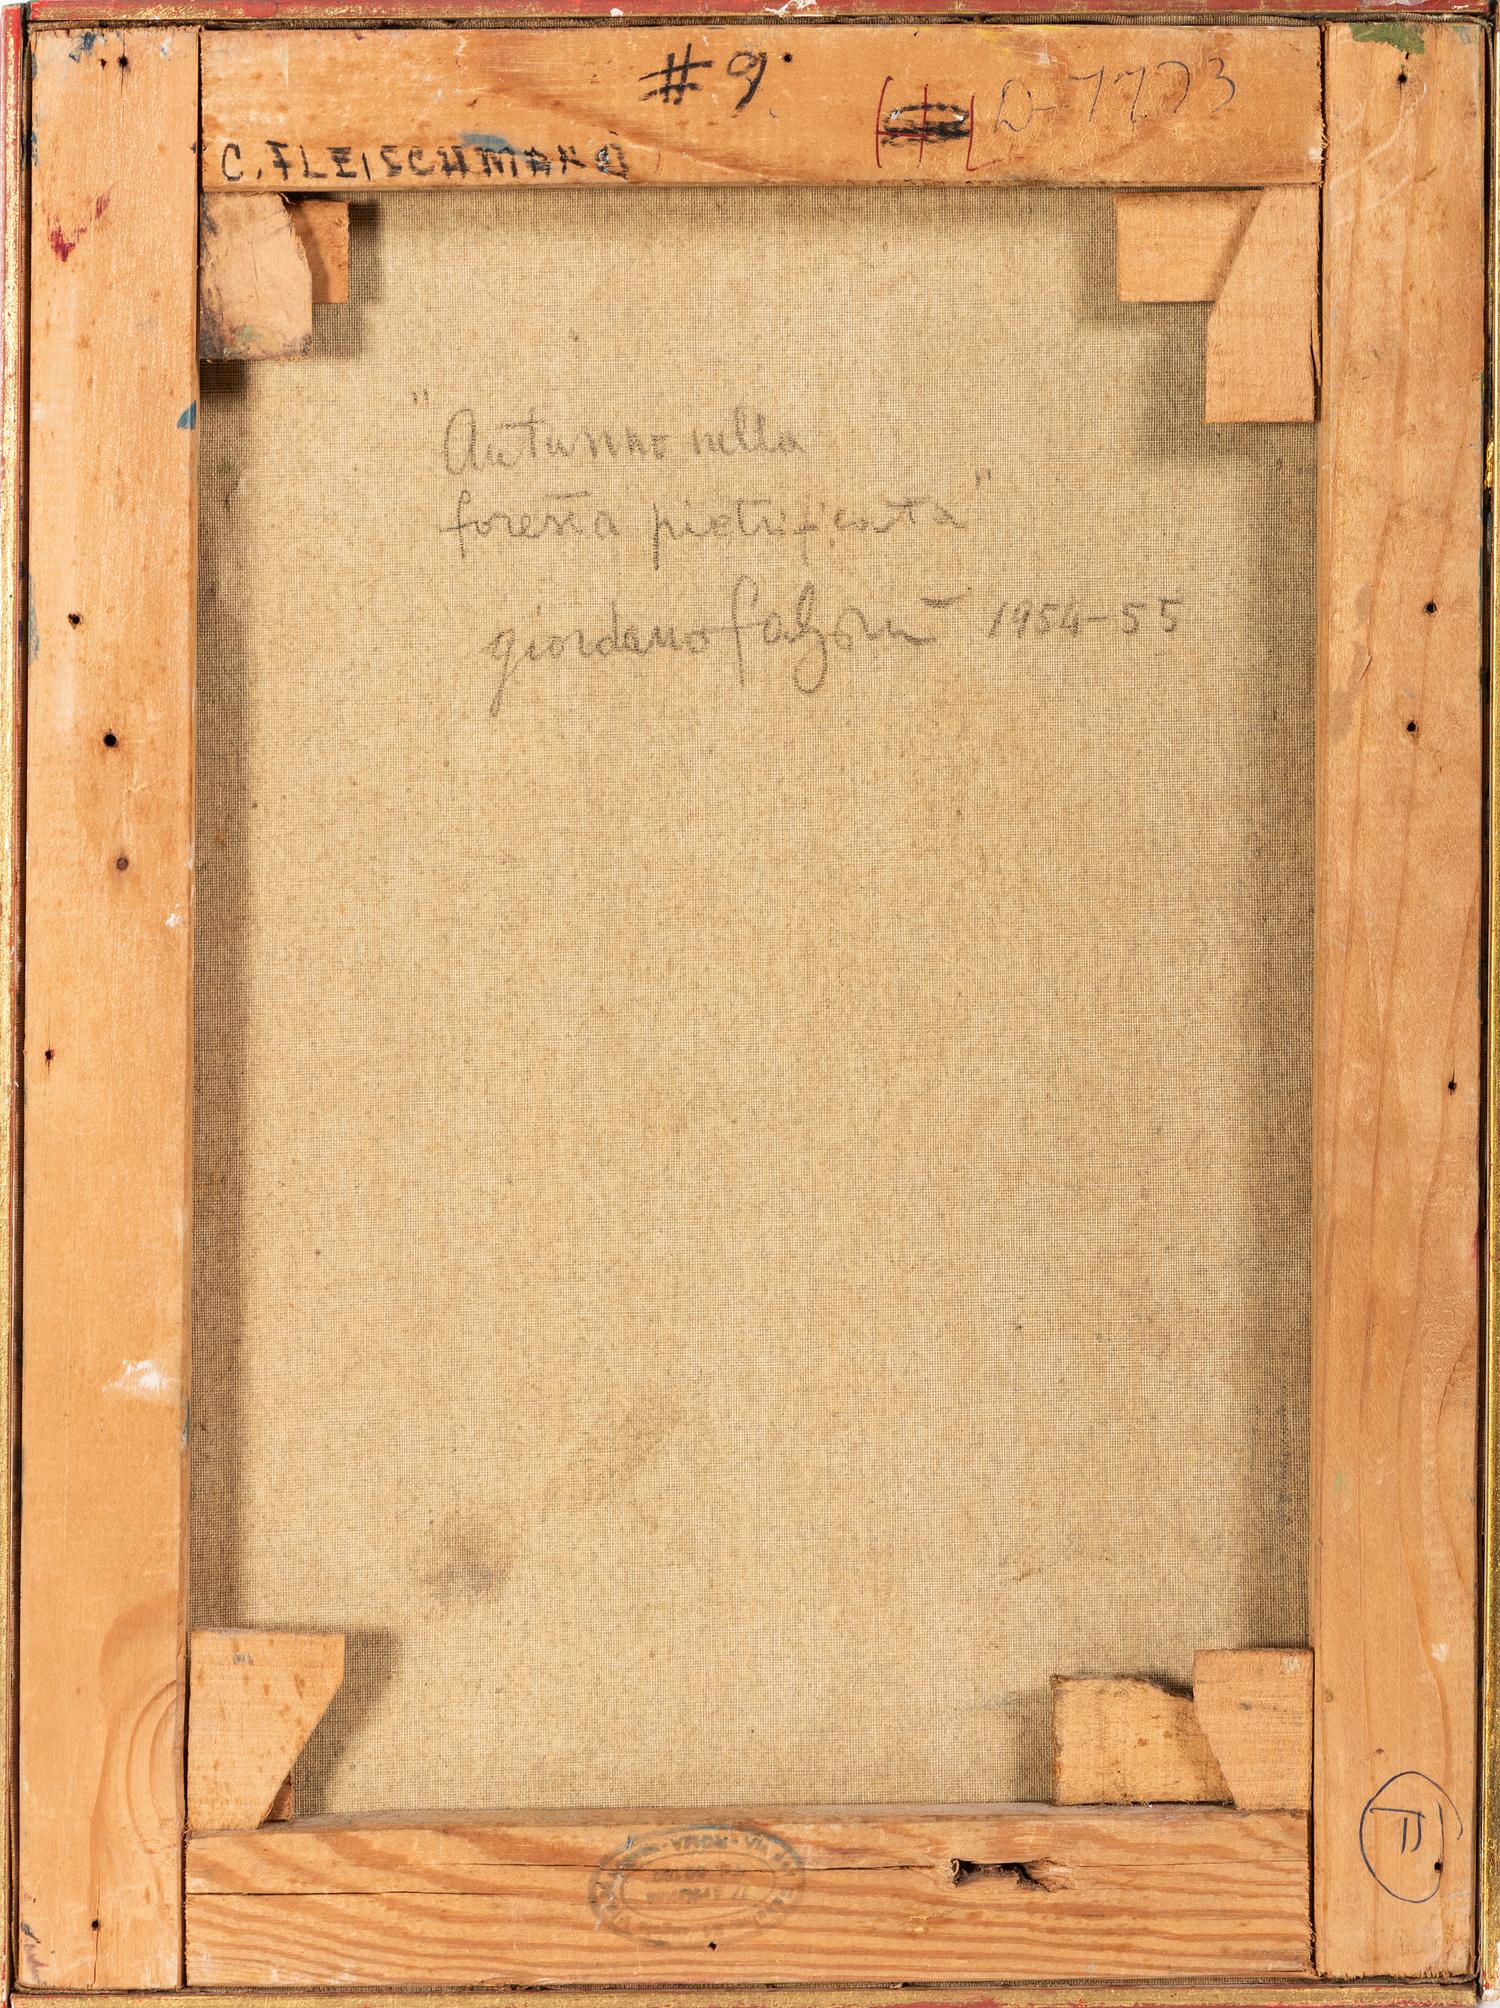 #9
D-7773
C. FLEISCHMANN
"Autunno nella
foresta pietrificata"
giordano falzoni 1954-55
II